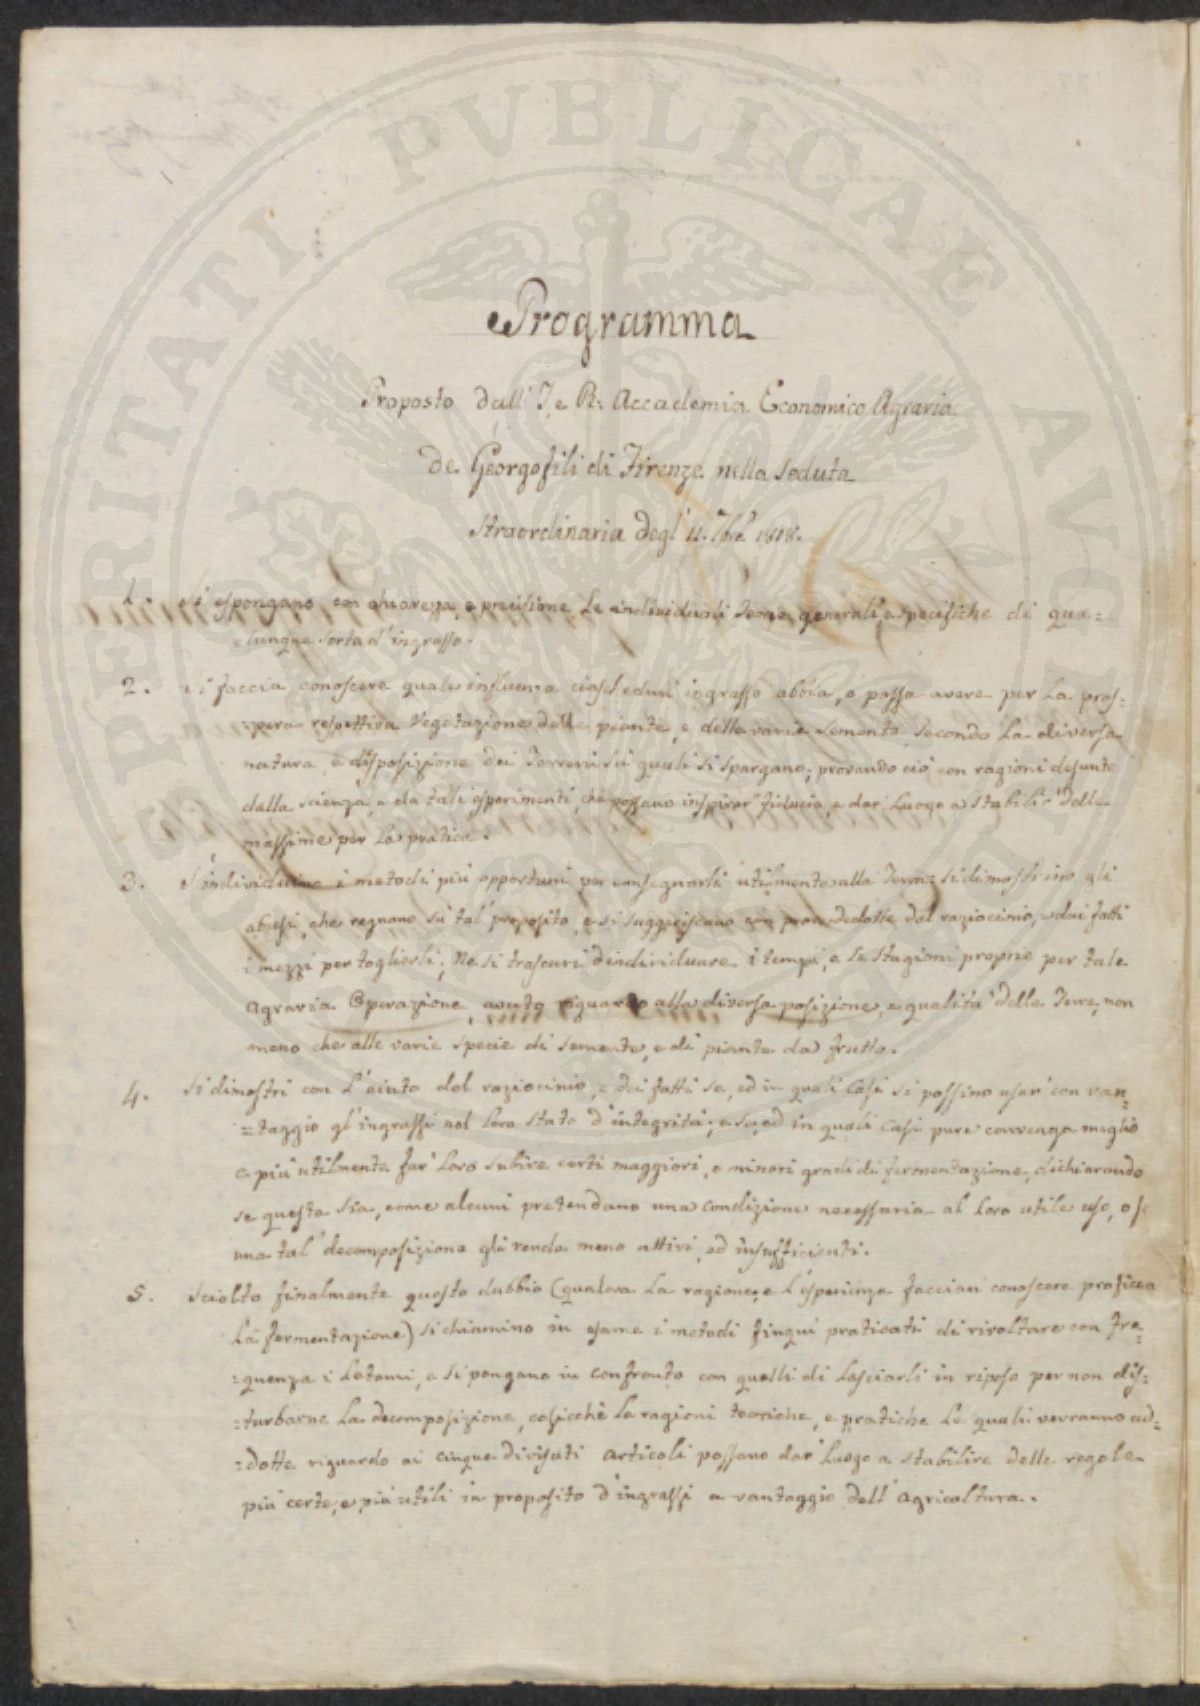 PROSPERITATI PVBLICAE AVGENDAE
Programma
Proposto dall' I. e R. Accademia Economico Agraria
de Georgofili di Firenze nella Seduta
Straordinaria degl' 11. 7bre 1818.
1. Si espongano con chiarezza, e precisione le individuali Teorie generali, e specifiche di qua=
=lunque sorta d'ingrasso.
2. Si faccia conoscere quale influenza ciascheduni ingrasso abbia, o possa avere per la pros=
=pera respettiva Vegetazione delle piante, e delle varie Semente, secondo la diversa
natura, e disposizione dei Terreni sù quali si spargano; provando ciò con ragioni desunte
dalla scienza, e da tali esperimenti, che possano inspirar' fiducia, e dar' luogo a stabilir' delle
massime per la pratica.
3. S'individuino i metodi più opportuni per consegnarli utilmente alla Terra; si dimostrino gli
abusi, che regnano sù tal' proposito, e si suggeriscano con prove dedotte dal raziocinio, e dai fatti
i mezzi per toglierli; Ne si trascuri d'individuare i tempi, e le stagioni proprie per tale
Agraria Operazione, avuto riguardo alla diversa posizione, e qualità delle Terre, non
meno che alle varie specie di semente, e di piante da frutto.
4. Si dimostri con l'aiuto del raziocinio, e dei fatti se, ed in quali Casi si possino usar' con van=
=taggio gl'ingrassi nel loro stato d'integrità; e se, ed in quali Casi pure convenga meglio
e più utilmente far' loro subire certi maggiori, o minori gradi di fermentazione, dichiarando
se questa sia, come alcuni pretendano una condizione necessaria al loro utile uso, o se
una tal' decomposizione gli renda meno attivi, ed insufficienti.
5. Sciolto finalmente questo dubbio (qualora la ragione, e l'esperienza faccian' conoscere proficua
la fermentazione) si chiamino in esame i metodi finquì praticati di rivoltare con fre=
=quenza i Letami, e si pongano in confronto con quelli di lasciarli in riposo per non dis=
=turbarne la decomposizione, cosicchè le ragioni teoriche, e pratiche le quali verranno ad=
=dotte riguardo ai cinque divisati articoli possano dar' luogo a stabilire delle regole
più certe, e più utili in proposito d'ingrassi a vantaggio dell' Agricoltura.